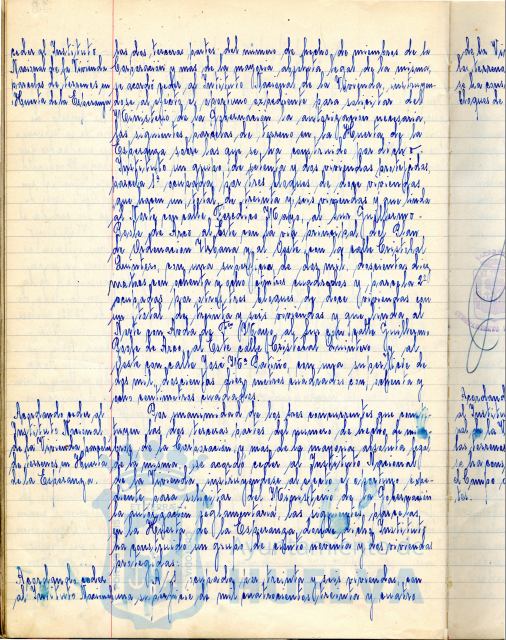 ceder al Instituto
Nacional de la Vivienda
parcelas de terrenos en
Huerta de la Esperanza
las dos terceras partes del número de hecho de miembros de la
Corporación y mas de la mayoria absoluta legal de la misma,
se acordó ceder al Instituto Nacional de la Vivienda, instruyen-
dose al efecto el oportuno expediente para solicitar del
Ministerio de la Gobernación la autorización necesaria,
las siguientes parcelas de terreno en la Huerta de la
Esperanza sobre las que se ha construido por dicho
Instituto un grupo de setenta y dos viviendas protegidas,
parcela 1ª ocupada por tres bloques de doce viviendas
que hacen un total de treinta y seis viviendas y que linda
al Norte con calle Federico Mayo, al Sur Guillermo
Poole de Arco, al Este con la via principal del Plan
de Ordenacion Urbana y al Oeste con la calle Cristobal
Quintero, con una superficie de dos mil, doscientos diez
metros con ochenta y ocho cmtros cuadrados y parcela 2ª
ocupadas por otros tres bloques de doce viviendas con
un total de treinta y seis viviendas y que linda al
Norte con Avda de Fco Mayo, al Sur con calle Guillermo
Poole de Arco, al Este calle Cristobal Quintero y al
Oeste con calle José Mª Patiño, con una superficie de
dos mil, doscientos diez metros cuadrados con ochenta y
ocho centímetros cuadrados.
Acordando ceder al
Instituto Nacional
de la Vivienda
de terrenos en Huerta
de la Esperanza.
Por unanimidad de los tres concurrentes que cons-
tituyen las dos terceras partes del numero de hecho de miem-
bros de la Corporación y mas de la mayoria absoluta legal
de la misma se acordó ceder al Instituto Nacional
de la Vivienda, instruyendose al efecto el oportuno expe-
diente para solicitar del Ministerio de la Gobernación
la autorización reglamentaria, las siguientes parcelas,
en la Huerta de la Esperanza, donde dicho Instituto
ha construido un grupo de ciento noventa y dos viviendas
protegidas:
Acordando ceder
al Instituto Nacional
ocupada por treinta y seis viviendas con
una superficie de mil cuatrocientos treinta y cuatro
de la Viv
los terreno
se ha cons
bloques de
Acordando
al Institut
de la
los terrenos
se ha cons
el Campo d